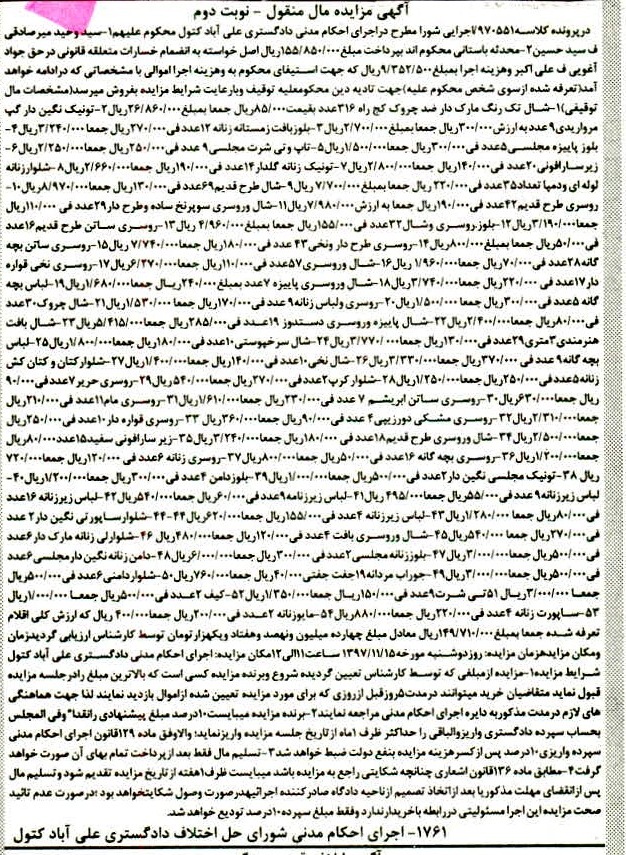 آگهی مزایده مال منقول - نوبت دوم
در پرونده کلاسه ۹۷۰۵۵۱/اجرایی شورا مطرح در اجرای احکام مدنی دادگستری علی آباد کتول محکوم علیهم ۱-سید وحید میرصادقی
ف سید حسین ۲-محدثه باستانی محکوم اند بپرداخت مبلغ ۱۵۵/۸۵۰/۰۰۰ریال اصل خواسته به انضمام خسارات متعلقه قانونی در حق جواد
آغویی ف علی اکبر وهزینه اجرا بمبلغ ۹/۳۵۲/۵۰۰ریال که جهت استیفای محکوم به وهزینه اجرا اموالی با مشخصاتی که درادامه خواهد
آمد(تعرفه شده ازسوی شخص محکوم علیه)جهت تادیه دین محکوم علیه توقیف وبا رعایت شرایط مزایده بفروش میرسد(مشخصات مال
توقیفی)۱-شال تک رنگ مارک دار ضد چروک کج راه ۳۱۶عدد بقیمت ۸۵/۰۰۰ریال جمعا بمبلغ ۲۶/۸۶۰/۰۰۰ریال۲-تونیک نگین دار گپ
مرواریدی۹عدد به ارزش ۳۰۰/۰۰۰ریال جمعا بمبلغ ۲/۷۰۰/۰۰۰ریال۳-بلوزبافت زمستانه زنانه ۱۲عدد فی ۲۷۰/۰۰۰ریال جمعا ۳/۲۴۰/۰۰۰ریال۴-
بلوز پاییزه مجلسی۵عدد فی ۳۰۰/۰۰۰ریال جمعا ۱/۵۰۰/۰۰۰ریال۵-تاپ و تی شرت مجلسی۹عدد فی ۲۵۰/۰۰۰ریال جمعا ۲/۲۵۰/۰۰۰ریال۶-
زیرسارافونی۲۰عدد فی ۱۴۰/۰۰۰ریال جمعا ۲/۸۰۰/۰۰۰ریال۷-تونیک زنانه گلدار۱۴عدد فی ۱۹۰/۰۰۰ریال جمعا ۲/۶۶۰/۰۰۰ریال۸-شلوارزنانه
لوله ای ودمپا تعداد۳۵عدد فی ۲۲۰/۰۰۰ ریال جمعا بمبلغ ۷/۷۰۰/۰۰۰ریال۹-شال طرح قدیم۶۹عدد فی ۱۳۰/۰۰۰ریال جمعا ۸/۹۷۰/۰۰۰ریال۱۰-
روسری طرح قدیم۴۲عدد فی ۱۹۰/۰۰۰ریال جمعا به ارزش ۷/۹۸۰/۰۰۰ریال۱۱-شال وروسری سوپرنخ ساده وطرح دار۲۹عدد فی ۱۱۰/۰۰۰ریال
جمعا ۳/۱۹۰/۰۰۰ریال۱۲-بلوز،روسری وشال۳۲عدد فی ۱۵۵/۰۰۰ریال جمعا بمبلغ ۴/۹۶۰/۰۰۰ ریال۱۳-روسری ساتن طرح قدیم۱۶عدد
فی ۵۰/۰۰۰ریال جمعا بمبلغ ۸۰۰/۰۰۰ریال۱۴-روسری طرح دار ونخی۴۳عدد فی ۱۸۰/۰۰۰ریال جمعا ۷/۷۴۰/۰۰۰ ریال۱۵-روسری ساتن بچه
گانه۲۸عدد فی ۷۰/۰۰۰ریال جمعا ۱/۹۶۰/۰۰۰ ریال۱۶-شال وروسری۵۷عدد فی ۱۱۰/۰۰۰ریال جمعا ۶/۲۷۰/۰۰۰ریال۱۷-روسری نخی قواره
دار۱۷عدد فی ۲۲۰/۰۰۰ریال جمعا ۳/۷۴۰/۰۰۰ریال۱۸-شال وروسری پاییزه ۷عدد بمبلغ ۲۴۰/۰۰۰ریال جمعا ۱/۶۸۰/۰۰۰ریال۱۹-لباس بچه
گانه ۵عدد فی ۳۰۰/۰۰۰ریال جمعا ۱/۵۰۰/۰۰۰ ریال۲۰-روسری ولباس زنانه۹عدد فی ۱۷۰/۰۰۰ریال جمعا ۱/۵۳۰/۰۰۰ریال۲۱-شال چروک۳۰عدد
فی ۸۰/۰۰۰ریال جمعا ۲/۴۰۰/۰۰۰ریال۲۲-شال پاییزه وروسری دستدوز ۱۹عدد فی ۲۸۵/۰۰۰ریال جمعا ۵/۴۱۵/۰۰۰ریال۲۳-شال بافت
هنرمندی۳متری۲۹عدد فی ۱۳۰/۰۰۰ریال جمعا ۳/۷۷۰/۰۰۰ریال۲۴-شال سرخپوستی۱۰عدد فی ۱۸۰/۰۰۰ریال جمعا ۱/۸۰۰/۰۰۰ریال۲۵-لباس
بچه گانه۹عدد فی ۳۷۰/۰۰۰ریال جمعا ۳/۳۳۰/۰۰۰ریال۲۶-شال نخی۱۰عدد فی ۱۴۰/۰۰۰ریال جمعا ۱/۴۰۰/۰۰۰ریال۲۷-شلوارکتان و کتان کش
زنانه۵عدد فی ۲۵۰/۰۰۰ریال جمعا ۱/۲۵۰/۰۰۰ریال۲۸-شلوار کرپ۲عدد فی ۲۷۰/۰۰۰ریال جمعا ۵۴۰/۰۰۰ریال۲۹-روسری حریر۷عدد فی ۹۰/۰۰۰
ریال جمعا ۶۳۰/۰۰۰ریال۳۰-روسری ساتن ابریشم ۷عدد فی ۲۳۰/۰۰۰ریال جمعا ۱/۶۱۰/۰۰۰ریال۳۱-روسری مام۱۱عدد فی ۲۱۰/۰۰۰ریال
جمعا ۲/۳۱۰/۰۰۰ریال۳۲-روسری مشکی دورزیپی۴عدد فی ۹۰/۰۰۰ریال جمعا ۳۶۰/۰۰۰ریال ۳۳-روسری قواره دار۱۰عدد فی ۲۵۰/۰۰۰ریال
جمعا ۲/۵۰۰/۰۰۰ریال ۳۴-شال وروسری طرح قدیم۱۸عدد فی ۱۸۰/۰۰۰ریال جمعا ۳/۲۴۰/۰۰۰ریال۳۵-زیر سارافونی سفید۱۵عدد ۸۰/۰۰۰ریال
جمعا ۱/۲۰۰/۰۰۰ریال۳۶-روسری بچه گانه ۱۶عدد فی ۵۰/۰۰۰ریال جمعا ۸۰۰/۰۰۰ریال۳۷-روسری زنانه ۶عدد فی ۱۲۰/۰۰۰ریال جمعا ۷۲۰/۰۰۰
ریال ۳۸-تونیک مجلسی نگین دار۲عدد فی ۵۰۰/۰۰۰ریال جمعا ۱/۰۰۰/۰۰۰ریال۳۹-بلوزدامن ۴عدد فی ۳۰۰/۰۰۰ریال جمعا ۱/۲۰۰/۰۰۰ریال۴۰-
لباس زیرزنانه۹عدد فی ۵۵/۰۰۰ریال جمعا ۴۹۵/۰۰۰ ریال۴۱-لباس زیرزنانه۹عدد فی ۶۰/۰۰۰ریال جمعا ۵۴۰/۰۰۰ریال۴۲-لباس زیرزنانه ۱۶عدد
فی ۸۰/۰۰۰ریال جمعا ۱/۲۸۰/۰۰۰ریال۴۳-لباس زیرزنانه ۴عدد فی ۱۵۵/۰۰۰ریال جمعا ۶۲۰/۰۰۰ریال۴۴-۴۴-شلوارساپورتی نگین دار۲عدد
فی ۲۷۰/۰۰۰ریال جمعا ۵۴۰/۰۰۰ریال۴۵-شال وروسری بافت ۴عدد فی ۱۲۰/۰۰۰ریال جمعا ۴۸۰/۰۰۰ریال ۴۶-شلوارلی زنانه مارک دار۶عدد
فی ۵۰۰/۰۰۰ریال جمعا ۳/۰۰۰/۰۰۰ریال۴۷-بلوززنانه مجلسی۲عدد فی ۳۰۰/۰۰۰ریال جمعا ۶/۰۰۰/۰۰۰ریال۴۸-دامن زنانه نگین دارمجلسی۶عدد
فی ۵۰۰/۰۰۰ریال جمعا ۳/۰۰۰/۰۰۰ریال۴۹-جوراب مردانه۱۹جفت جفتی ۴۰/۰۰۰ریال جمعا ۷۶۰/۰۰۰ریال۵۰-شلواردامنی۶عدد فی ۵۰۰/۰۰۰ریال
جمعا ۳/۰۰۰/۰۰۰ریال ۵۱تی شرت۹عدد فی ۱۵۰/۰۰۰ریال جمعا ۱/۳۵۰/۰۰۰ریال۵۲-کیف ۲عدد فی ۵۰۰/۰۰۰ریال جمعا ۱/۰۰۰/۰۰۰ریال
۵۳-ساپورت زنانه ۴عدد فی ۲۲۰/۰۰۰ریال جمعا ۸۸۰/۰۰۰ریال۵۴-مایوزنانه ۲عدد فی ۲۰۰/۰۰۰ریال جمعا ۴۰۰/۰۰۰ ریال که ارزش کلی اقلام
تعرفه شده جمعا بمبلغ ۱۴۹/۷۱۰/۰۰۰ریال معادل مبلغ چهارده میلیون ونهصد وهفتاد ویکهزارتومان توسط کارشناس ارزیابی گردیدزمان
ومکان مزایدهزمان مزایده: روزدوشنبه مورخه ۱۳۹۷/۱۱/۱۵ساعت۱۱الی۱۲مکان مزایده: اجرای احکام مدنی دادگستری علی آباد کتول
شرایط مزایده۱-مزایده ازمبلغی که توسط کارشناس تعیین گردیده شروع وبرنده مزایده کسی است که بالاترین مبلغ رادرجلسه مزایده
قبول نماید متقاضیان خرید میتوانند درمدت۵روزقبل ازروزی که برای مورد مزایده تعیین شده ازاموال بازدید نمایند لذا جهت هماهنگی
های لازم درمدت مذکوربه دایره اجرای احکام مدنی مراجعه نمایند۲-برنده مزایده میبایست۱۰درصد مبلغ پیشنهادی رانقدا"وفی المجلس
بحساب سپرده دادگستری واریزوالباقی را حداکثر ظرف ۱ماه ازتاریخ جلسه مزایده واریزنماید؛ والاوفق ماده ۱۲۹قانون اجرای احکام مدنی
سپرده واریزی۱۰درصد پس ازکسرهزینه مزایده بنفع دولت ضبط خواهد شد۳-تسلیم مال فقط بعد ازپرداخت تمام بهای آن صورت خواهد
گرفت۴-مطابق ماده ۱۳۶قانون اشعاری چنانچه شکایتی راجع به مزایده باشد میبایست ظرف۱هفته ازتاریخ مزایده تقدیم شود وتسلیم مال
پس ازانقضای مهلت مذکوریا بعد ازاتخاذ تصمیم ازناحیه دادگاه صادرکننده اجرائیهدرصورت وصول شکایتخواهد بود ؛درصورت عدم تائید
صحت مزایده این اجرا مسئولیتی دررابطه باخریدارندارد وفقط مبلغ سپرده۱۰درصد تودیع خواهد شد.
۱۷۶۱- اجرای احکام مدنی شورای حل اختلاف دادگستری علی آباد کتول